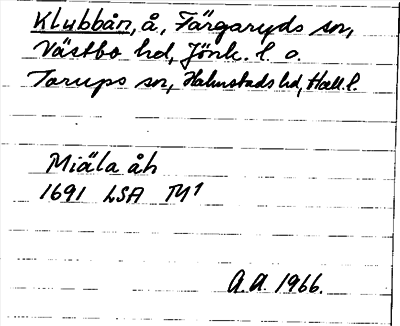 Klubbån, å, Färgaryds sn,
Västbo hd, Jönk. l. o.
Torups sn, Halmstads hd, Hall. l.
Miäla åh
1691 LSA M¹
A.A. 1966.